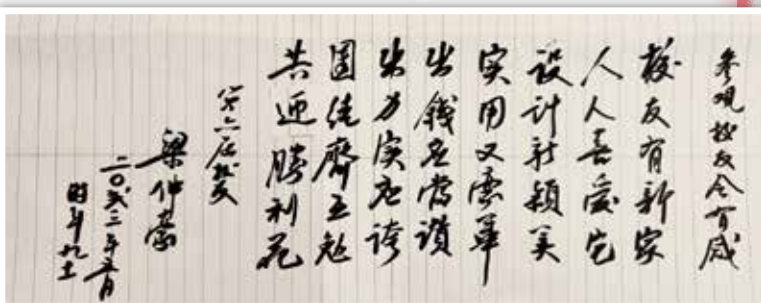 参观校友会有感
校友有新家
人人喜爱它
设计新颖美
实用又豪華
出錢应当讚
出力实应誇
團结齊互勉
共迎勝利花
第六届校友
梁仲豪
二〇弍三年
时年九十